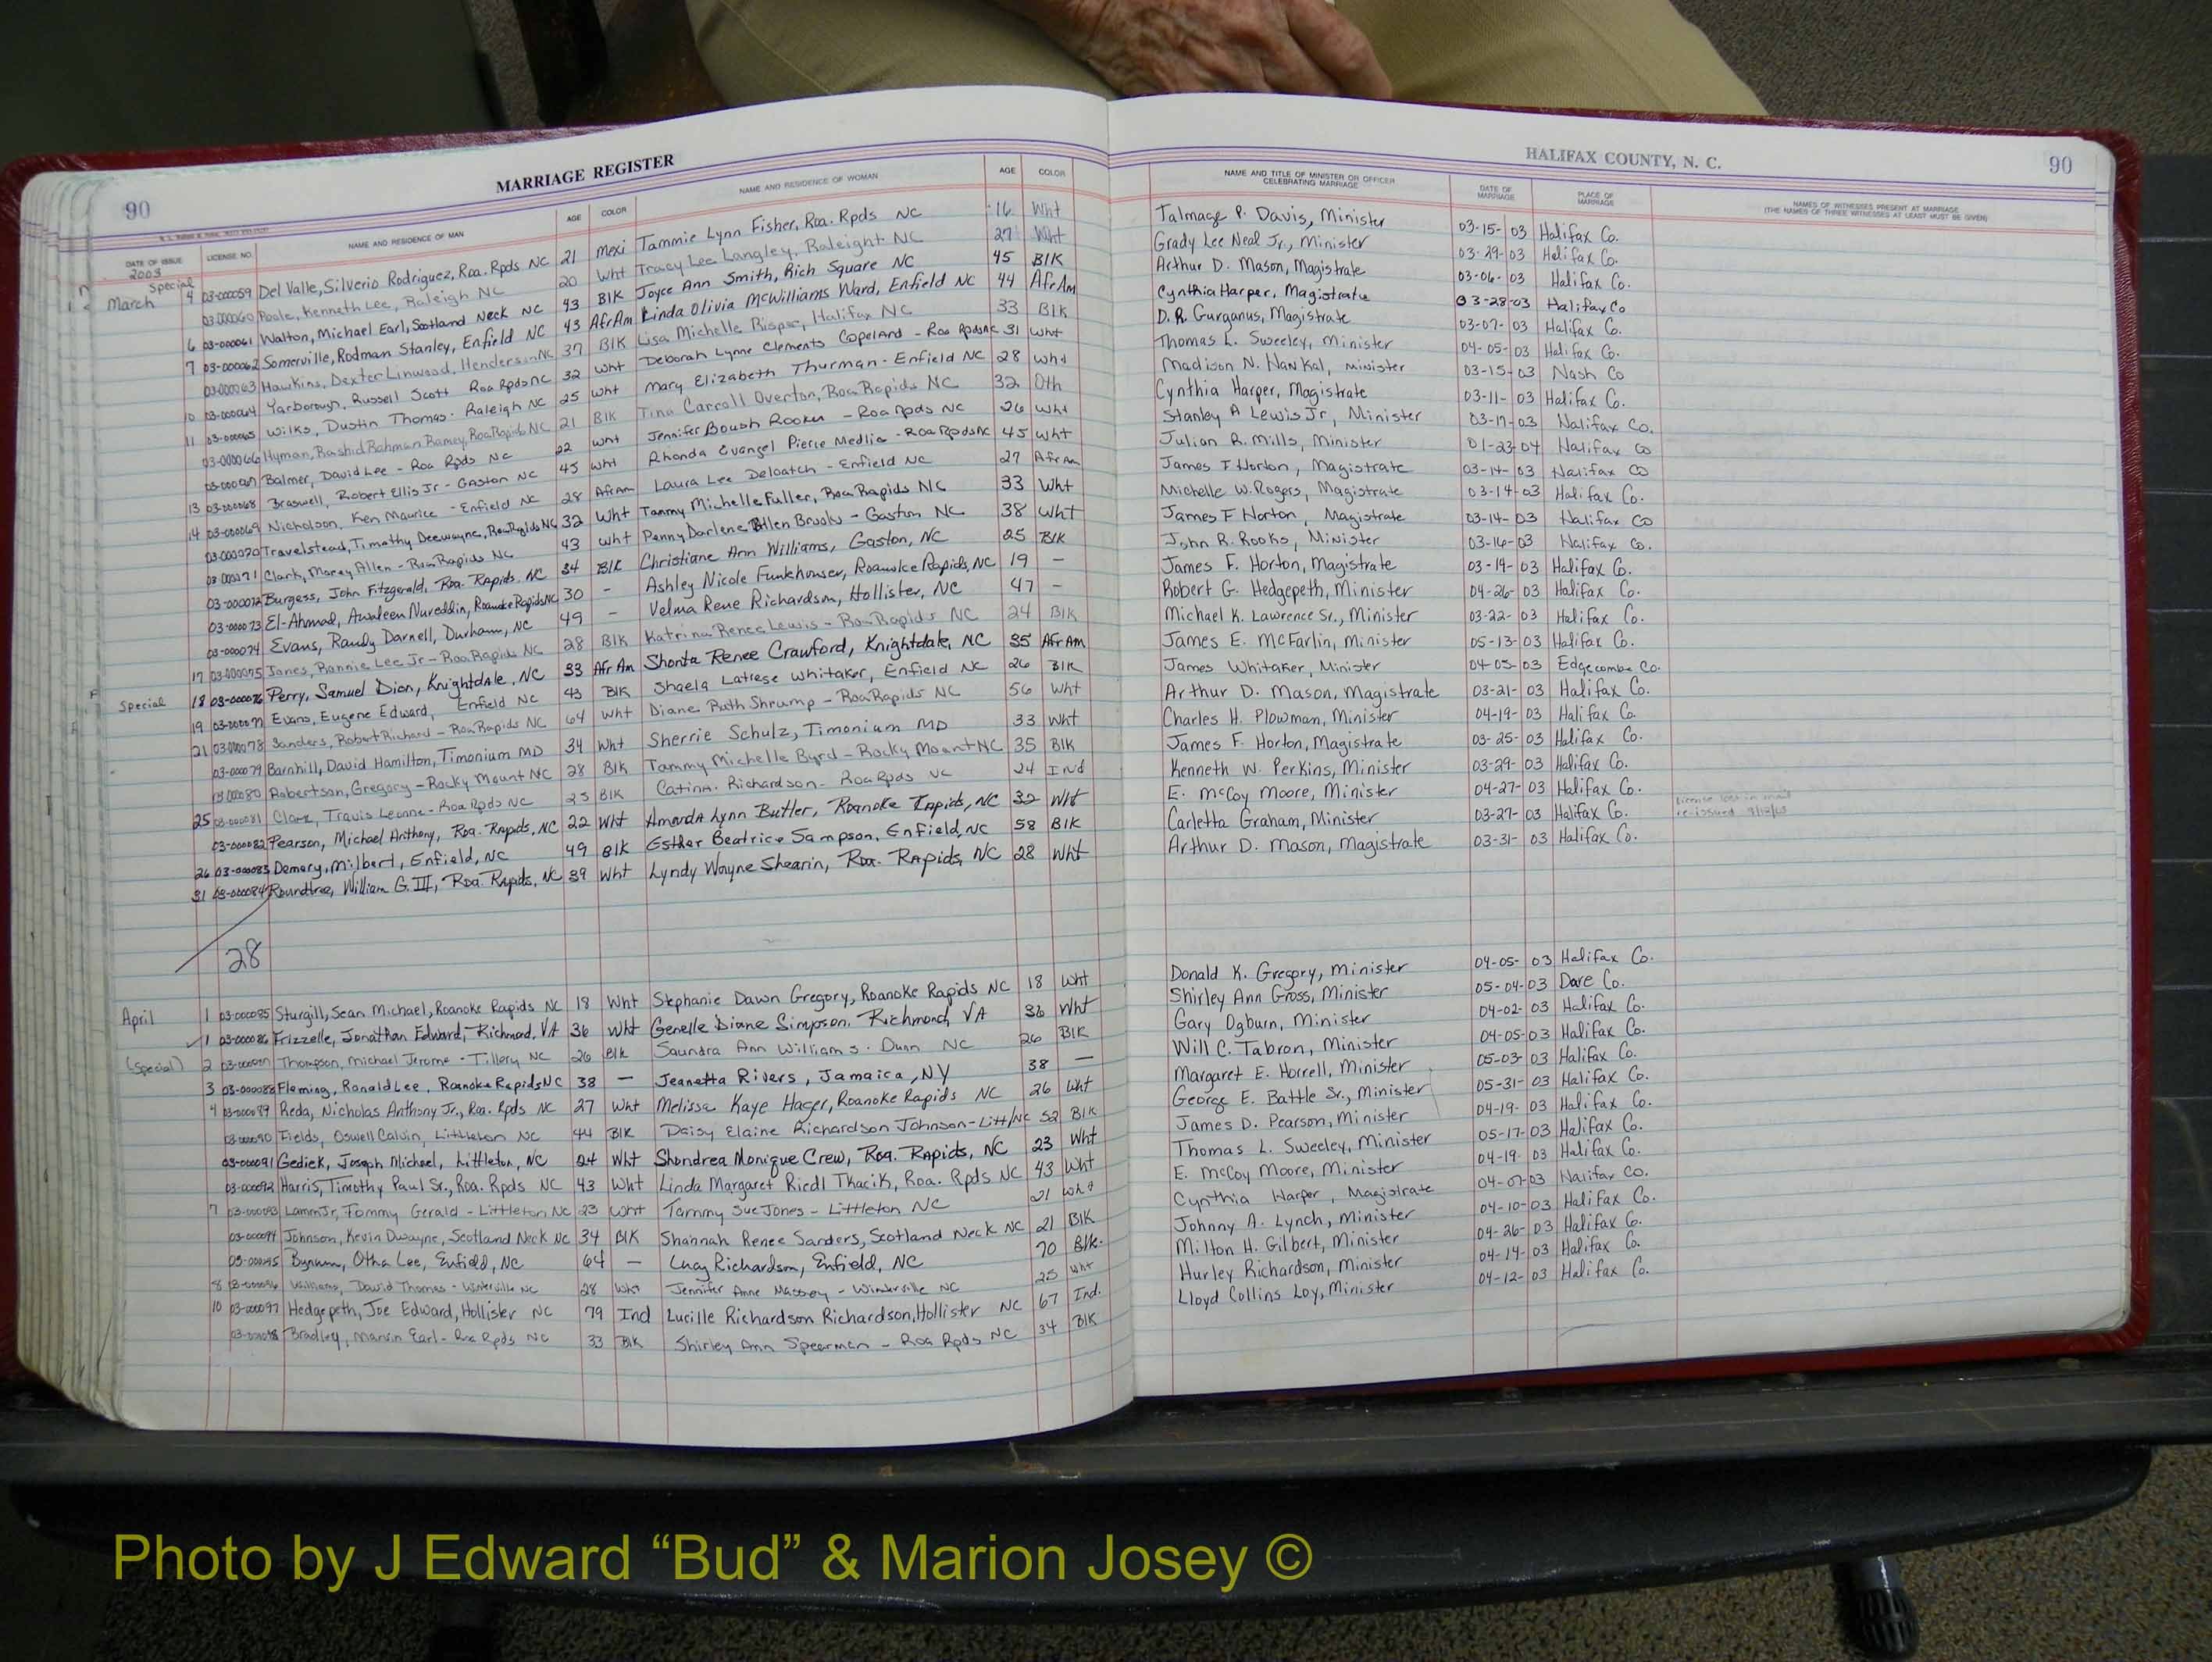 90
MARRIAGE REGISTER
DATE OF ISSUE LICENSE NO. NAME AND RESIDENCE OF MAN AGE COLOR NAME AND RESIDENCE OF WOMAN AGE COLOR
2003
Special
March 4 03-000059 Del Valle, Silverio Rodriguez, Roa. Rpds NC 21 mexi Tammie Lynn Fisher, Roa. Rpds NC 16 Wht
03-000060 Poole, Kenneth Lee, Raleigh NC 20 Wht Tracy Lee Langley, Raleigh NC 27 Wht
6 03-000061 Walton, Michael Earl, Scotland Neck NC 43 Blk Joyce Ann Smith, Rich Square NC 45 Blk
7 03-000062 Somerville, Rodman Stanley, Enfield NC 43 AfrAm Linda Olivia McWilliams Ward, Enfield NC 44 AfrAm
03-000063 Hawkins, Dexter Linwood, Henderson NC 37 Blk Lisa Michelle Halifax NC 33 Blk
10 03-000064 Yarborough, Russell Scott Roa Rpds NC 32 wht Deborah Lynne Clements Copeland - Roa Rpds NC 31 wht
11 03-000065 Wilks, Dustin Thomas - Raleigh NC 25 wht Mary Elizabeth Thurman - Enfield NC 28 wht
03-000066 Hyman, Rashid Rahman Ramey, Roa Rapids NC 21 Blk Tina Carroll Overton, Roa Rapids NC 32 Oth
03-000067 Balmer, David Lee - Roa Rpds NC 22 wht Jennifer Boush Rooker - Roa Rpds NC 26 wht
13 03-000068 Braswell, Robert Ellis Jr - Gaston NC 45 wht Rhonda Evangel Pierce Medlin - Roa Rpds NC 45 wht
14 03-000069 Nicholson, Ken Maurice - Enfield NC 28 AfrAm Laura Lee Deloatch - Enfield NC 27 AfrAm
03-000070 Travelstead, Timothy Deewayne, Roa Rapids NC 32 Wht Tammy Michelle Fuller, Roa Rapids NC 33 Wht
03-000071 Clark, Allen - Roa Rapids NC 43 wht Penny Darlene Allen Brooks - Gaston NC 38 wht
03-000072 Burgess, John Fitzgerald, Roa. Rapids, NC 34 Blk Christiane Ann Williams, Gaston, NC 25 Blk
03-000073 El-Ahmad, Nureddin, Roanoke Rapids NC 30 - Ashley Nicole Funkhouser, Roanoke Rapids, NC 19 -
03-000074 Evans, Randy Darnell, Durham, NC 49 - Velma Rene Richardson, Hollister, NC 47 -
17 03-000075 Jones, Rannie Lee Jr - Roa Rapids NC 28 Blk Katrina Renee Lewis - Roa Rapids NC 24 Blk
Special 18 03-000076 Perry, Samuel Dion, Knightdale, NC 33 Afr Am Shonta Renee Crawford, Knightdale, NC 35 Afr Am
19 03-000077 Evans, Eugene Edward, Enfield NC 43 Blk Shaela Latrese Whitaker, Enfield NC 26 Blk
21 03-000078 Sanders, Robert Richard - Roa Rapids NC 64 Wht Diane Ruth Shrump - Roa Rapids NC 56 Wht
03-000079 Barnhill, David Hamilton, Timonium MD 34 Wht Sherrie Schulz, Timonium MD 33 Wht
03-000080 Robertson, Gregory - Rocky Mount NC 28 Blk Tammy Michelle Byrd - Rocky Mount NC 35 Blk
25 03-000081 Travis Leonne - Roa Rpds NC 25 Blk Catina Richardson - Roa Rpds NC 24 Ind
03-000082 Pearson, Michael Anthony, Roa. Rapids, NC 22 Wht Amanda Lynn Butler, Roanoke Rapids, NC 32 Wht
26 03-000083 Demary, Milbert, Enfield, NC 49 Blk Esther Beatrice Sampson, Enfield, NC 58 Blk
31 03-000084 Roundtree, William G. III, Roa. Rapids, NC 39 Wht Lyndy Wayne Shearin, Roa. Rapids, NC 28 Wht
28
April 1 03-000085 Sturgill, Sean Michael, Roanoke Rapids NC 18 Wht Stephanie Dawn Gregory, Roanoke Rapids NC 18 Wht
1 03-000086 Frizzelle, Jonathan Edward, Richmond, VA 36 Wht Genelle Diane Simpson, Richmond, VA 36 Wht
(Special) 2 03-000087 Thompson, Michael Jerome - Tillery NC 26 Blk Saundra Ann Williams - Dunn NC 26 Blk
3 03-000088 Fleming, Ronald Lee, Roanoke Rapids NC 38 - Jeanetta Rivers, Jamaica, NY 38 -
4 03-000089 Reda, Nicholas Anthony Jr., Roa. Rpds NC 27 Wht Melissa Kaye Hager, Roanoke Rapids NC 26 Wht
03-000090 Fields, Oswell Calvin, Littleton NC 44 Blk Daisy Elaine Richardson Johnson - Litt/NC 52 Blk
03-000091 Gediek, Joseph Michael, Littleton, NC 24 Wht Shondrea Monique Crew, Roa. Rapids, NC 23 Wht
03-000092 Harris, Timothy Paul Sr., Roa. Rpds NC 43 Wht Linda Margaret Riedl Tkacik, Roa. Rpds NC 43 Wht
7 03-000093 Lamm Jr, Tommy Gerald - Littleton NC 23 Wht Tammy Sue Jones - Littleton NC 21 wht
03-000094 Johnson, Kevin Dwayne, Scotland Neck NC 34 Blk Shannah Renee Sanders, Scotland Neck NC 21 Blk
03-000095 Bynum, Otha Lee, Enfield, NC 64 - Lucy Richardson, Enfield, NC 70 Blk.
8 03-000096 Williams, David Thomas - Winterville NC 28 Wht Jennifer Anne Massey - Winterville NC 25 Wht
10 03-000097 Hedgepeth, Joe Edward, Hollister NC 79 Ind Lucille Richardson Richardson, Hollister NC 67 Ind.
03-000098 Bradley, Marvin Earl - Roa Rpds NC 33 Blk Shirley Ann Spearman - Roa Rpds NC 34 Blk
HALIFAX COUNTY, N. C.
90
NAME AND TITLE OF MINISTER OR OFFICER CELEBRATING MARRIAGE DATE OF MARRIAGE PLACE OF MARRIAGE NAMES OF WITNESSES PRESENT AT MARRIAGE
(THE NAMES OF THREE WITNESSES AT LEAST MUST BE GIVEN)
Talmage P. Davis, Minister 03-15-03 Halifax Co.
Grady Lee Neal Jr., Minister 03-29-03 Halifax Co.
Arthur D. Mason, Magistrate 03-06-03 Halifax Co.
Cynthia Harper, Magistrate 03-28-03 Halifax Co
D. R. Gurganus, Magistrate 03-07-03 Halifax Co.
Thomas L. Sweeley, Minister 04-05-03 Halifax Co.
Madison N. Minister 03-15-03 Nash Co
Cynthia Harper, Magistrate 03-11-03 Halifax Co.
Stanley A Lewis Jr, Minister 03-17-03 Halifax Co.
Julian R. Mills, Minister 01-23-04 Halifax Co
James F Horton, Magistrate 03-14-03 Halifax Co
Michelle W. Rogers, Magistrate 03-14-03 Halifax Co.
James F Horton, Magistrate 03-14-03 Halifax Co
John R. Rooks, Minister 03-16-03 Halifax Co.
James F. Horton, Magistrate 03-14-03 Halifax Co.
Robert G. Hedgepeth, Minister 04-26-03 Halifax Co.
Michael K. Lawrence Sr., Minister 03-22-03 Halifax Co.
James E. McFarlin, Minister 05-13-03 Halifax Co.
James Whitaker, Minister 04-05-03 Edgecombe Co.
Arthur D. Mason, Magistrate 03-21-03 Halifax Co.
Charles H. Plowman, Minister 04-19-03 Halifax Co.
James F. Horton, Magistrate 03-25-03 Halifax Co.
Kenneth W. Perkins, Minister 03-29-03 Halifax Co.
E. McCoy Moore, Minister 04-27-03 Halifax Co. License lost in mail
Carletta Graham, Minister 03-27-03 Halifax Co. re-issued
Arthur D. Mason, Magistrate 03-31-03 Halifax Co.
Donald K. Gregory, Minister 04-05-03 Halifax Co.
Shirley Ann Gross, Minister 05-04-03 Dare Co.
Gary Ogburn, Minister 04-02-03 Halifax Co.
Will C. Tabron, Minister 04-05-03 Halifax Co.
Margaret E. Horrell, Minister 05-03-03 Halifax Co.
George E. Battle Sr., Minister 05-31-03 Halifax Co.
James D. Pearson, Minister 04-19-03 Halifax Co.
Thomas L. Sweeley, Minister 05-17-03 Halifax Co.
E. McCoy Moore, Minister 04-19-03 Halifax Co.
Cynthia Harper, Magistrate 04-07-03 Halifax Co.
Johnny A. Lynch, Minister 04-10-03 Halifax Co.
Milton H. Gilbert, Minister 04-26-03 Halifax Co.
Hurley Richardson, Minister 04-14-03 Halifax Co.
Lloyd Collins Loy, Minister 04-12-03 Halifax Co.
Photo by J Edward “Bud” & Marion Josey ©